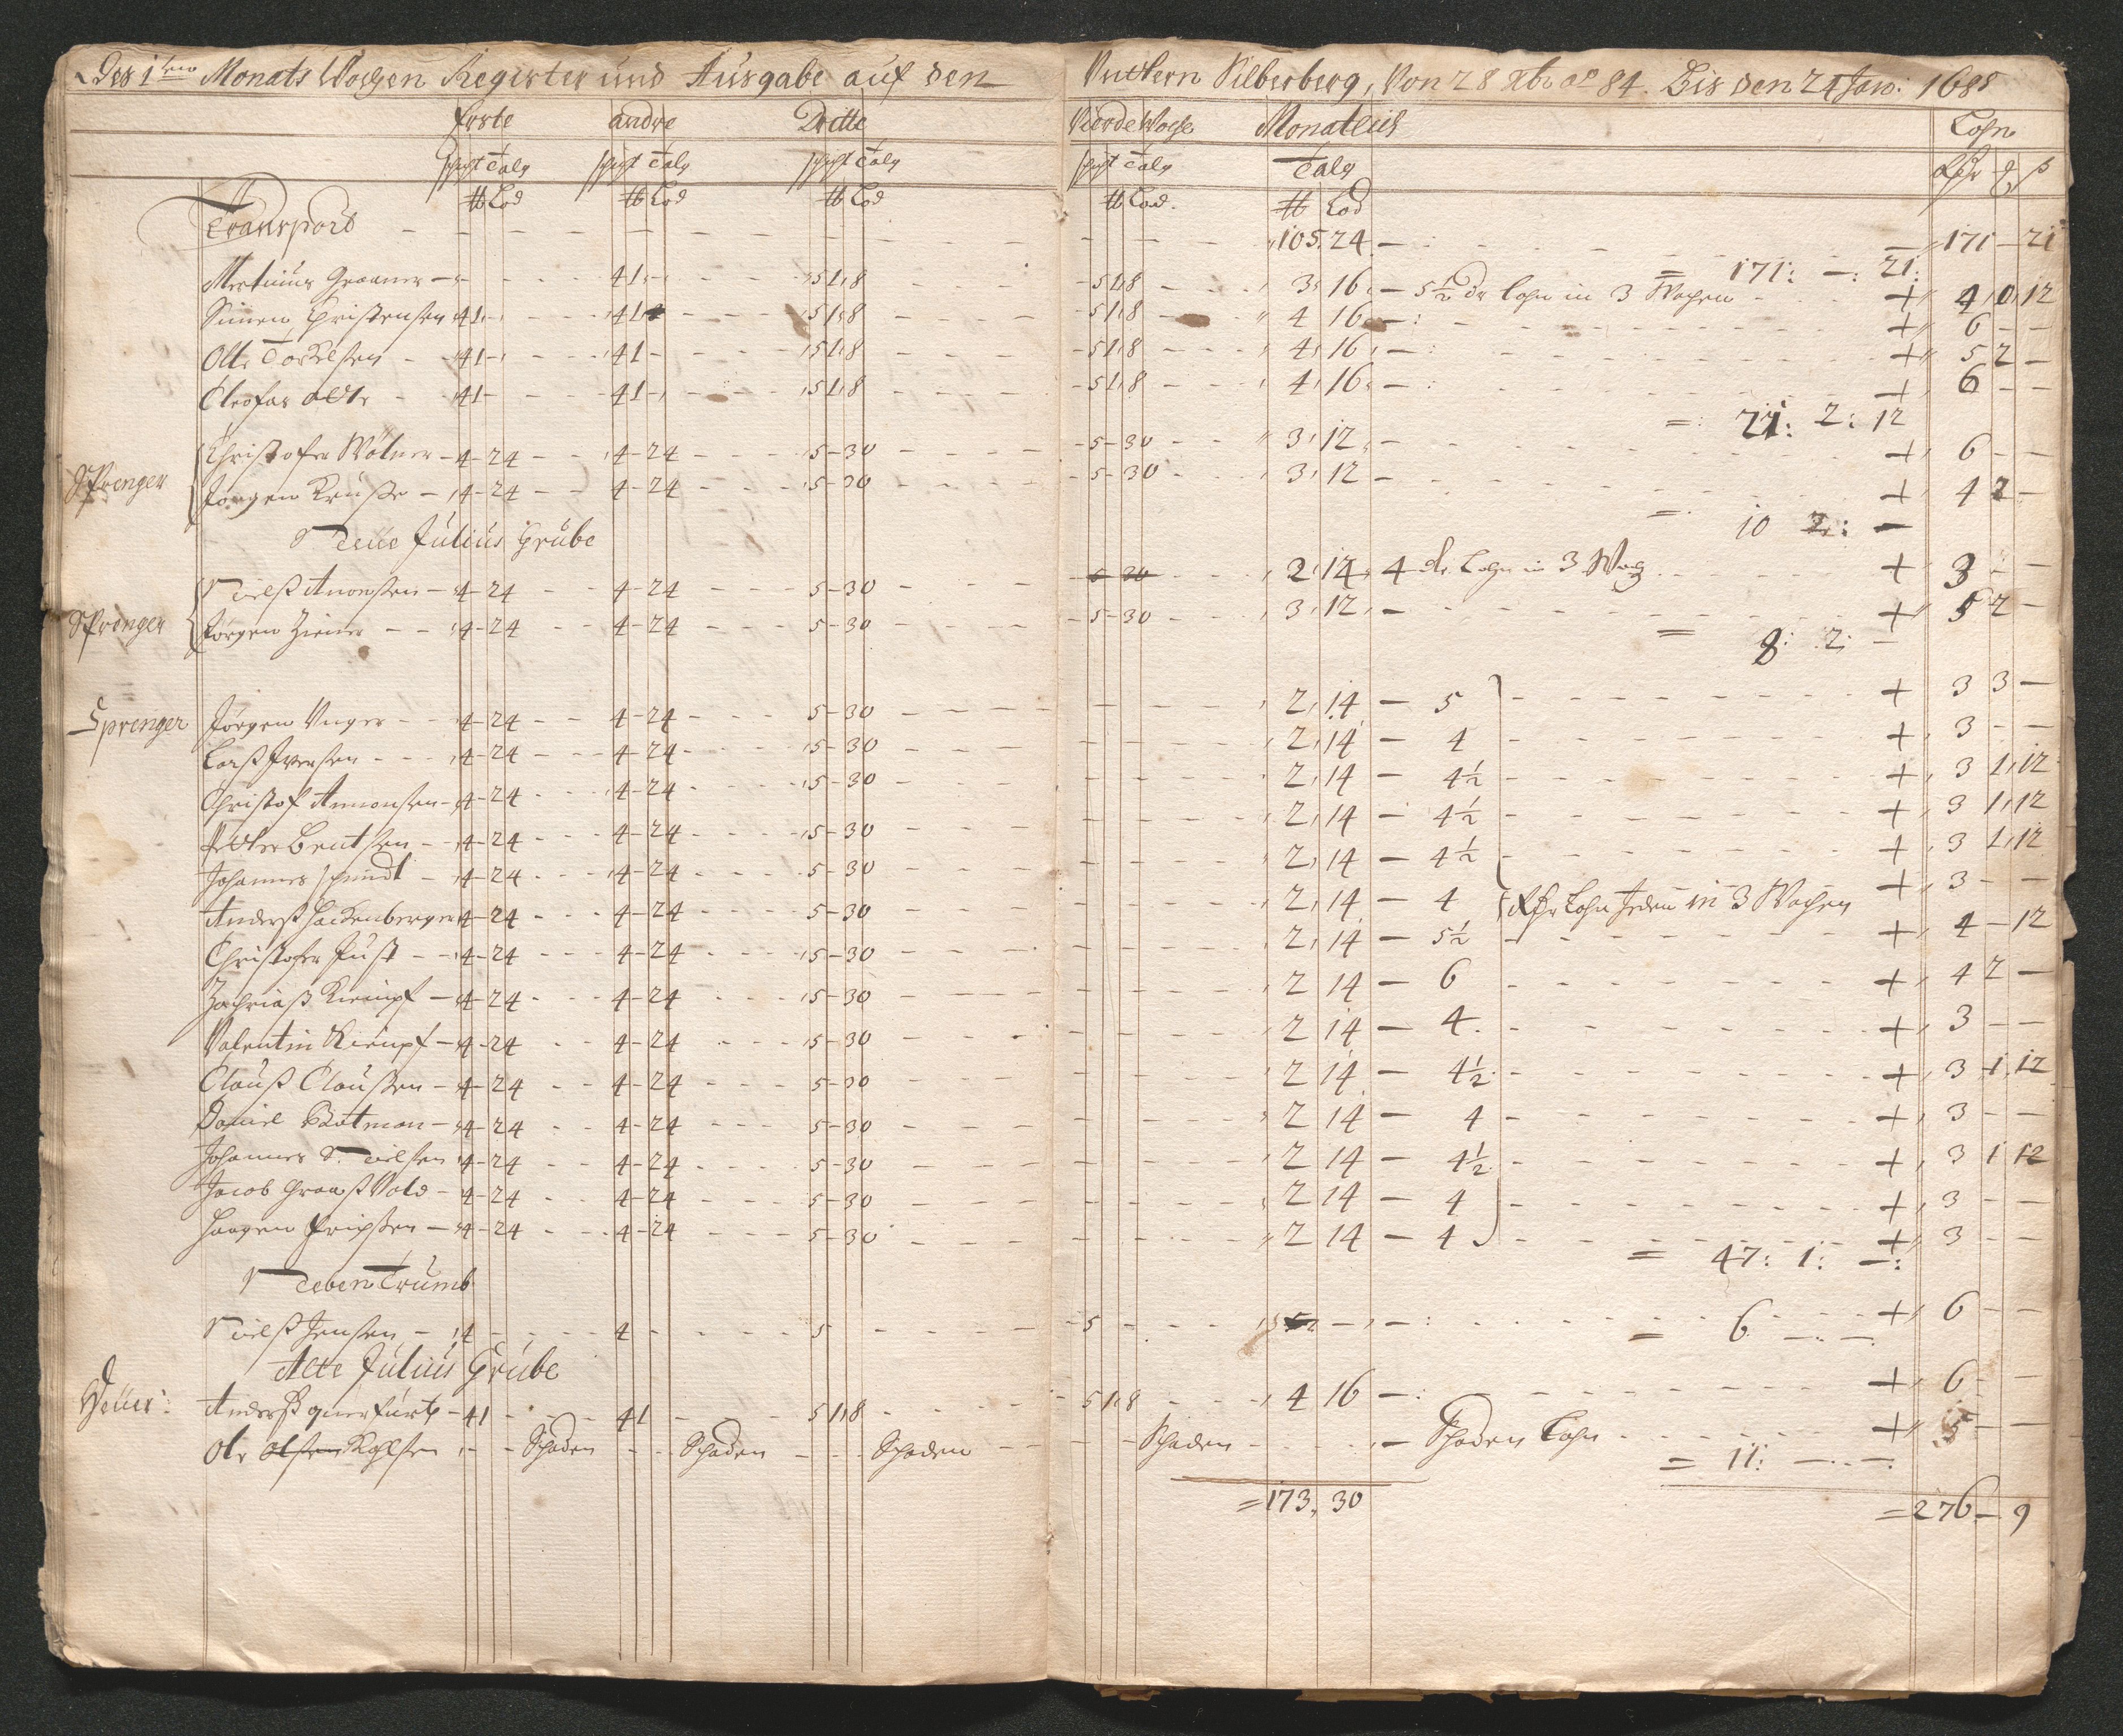 Des 1ten Monats Wochen Register und Ausgabe auf den Untern Silberberg, Von 28 Xbr ao 84. Bis den 24 Janv: 1685
Erste andre Dritte Vierde Woche Monatlich Lohn
schicht Talg schicht Talg schicht Talg schicht Talg Talg
℔ Lod ℔ Lod ℔ Lod ℔ Lod. ℔ Lod
Transport 105. 24 — 171 — 21
= 171: —: 21:
Martinus 41 51,8 51,8 3, 16 — 5½ Dr lohn in 3 Wochen + 4, 0, 12
Simen Christensen 41 41 51,8 51,8 4 16 — + 6 — —
Olle Torkelsen 41 41 51,8 51,8 4, 16 — + 5 2 —
Cleofas 41 41 51,8 51,8 4, 16 — + 6 — —
=: 21: 2: 12
Sprenger Christofer Wölner 4-24 4-24 5-30 5-30 3, 12 — + 6 — —
Jörgen Kruse 4-24 4-24 5-30 5-30 3, 12 — + 4 2 —
= 10 2: —
Neue Julius Grube
Sprenger Nielß Amonsen 4-24 4-24 5-30 5 30 2, 14 4 dr Lohn in 3 Woch + 3 — —
Jörgen Ziener 4-24 4-24 5-30 5-30 3, 12 — + 5 2 —
= 8: 2: —
Sprenger Jörgen Unger 4-24 4-24 5-30 2, 14 — 5 + 3 3 —
Larß Iversen 4-24 4-24 5-30 2, 14 — 4 + 3 — —
Christof Amonsen 4-24 4-24 5-30 2, 14 — 4½ + 3 1, 12
Petter Bentsen 4-24 4-24 5-30 2, 14 — 4½ + 3 1, 12
Johannes Schmidt 4-24 4-24 5-30 2, 14 — 4½ + 3 1, 12
Anderß Hackenberger 4-24 4-24 5-30 2, 14 — 4 Lohn Jeden in 3 Wochen + 3 — —
Christofer Pust 4-24 4-24 5-30 2, 14 — 5½ + 4 — 12
Zachriaß Kiempf 4-24 4-24 5-30 2 14 — 6 + 4 2 —
Valentin Kiempf 4-24 4-24 5-30 2 14 — 4 + 3 — —
Clauß Clausen 4-24 4-24 5-30 2 14 — 4½ + 3 1, 12
Daniel Botman 4-24 4-24 5-30 2 14 — 4 + 3 — —
Johannes Nielsen 4-24 4-24 5-30 2 14 — 4½ + 3 1 12
Jacob Vold 4-24 4-24 5-30 2 14 — 4 + 3 — —
Haagen Eriksen 4-24 4-24 5-30 2 14 — 4 + 3 — —
= 47: 1: —:
Neben Trumb
Nielß Jensen 4 4 5 5 + 6 — —
= 6 — —
Alte Julius Grube
Anderß querfurth 41 41 51,8 51,8 4 16 — + 6 — —
Ole Olsen Schaden Schaden Schaden Schaden — Schaden Lohn + 5 — —
= 11: — —
= 173. 30 = 276 — 9